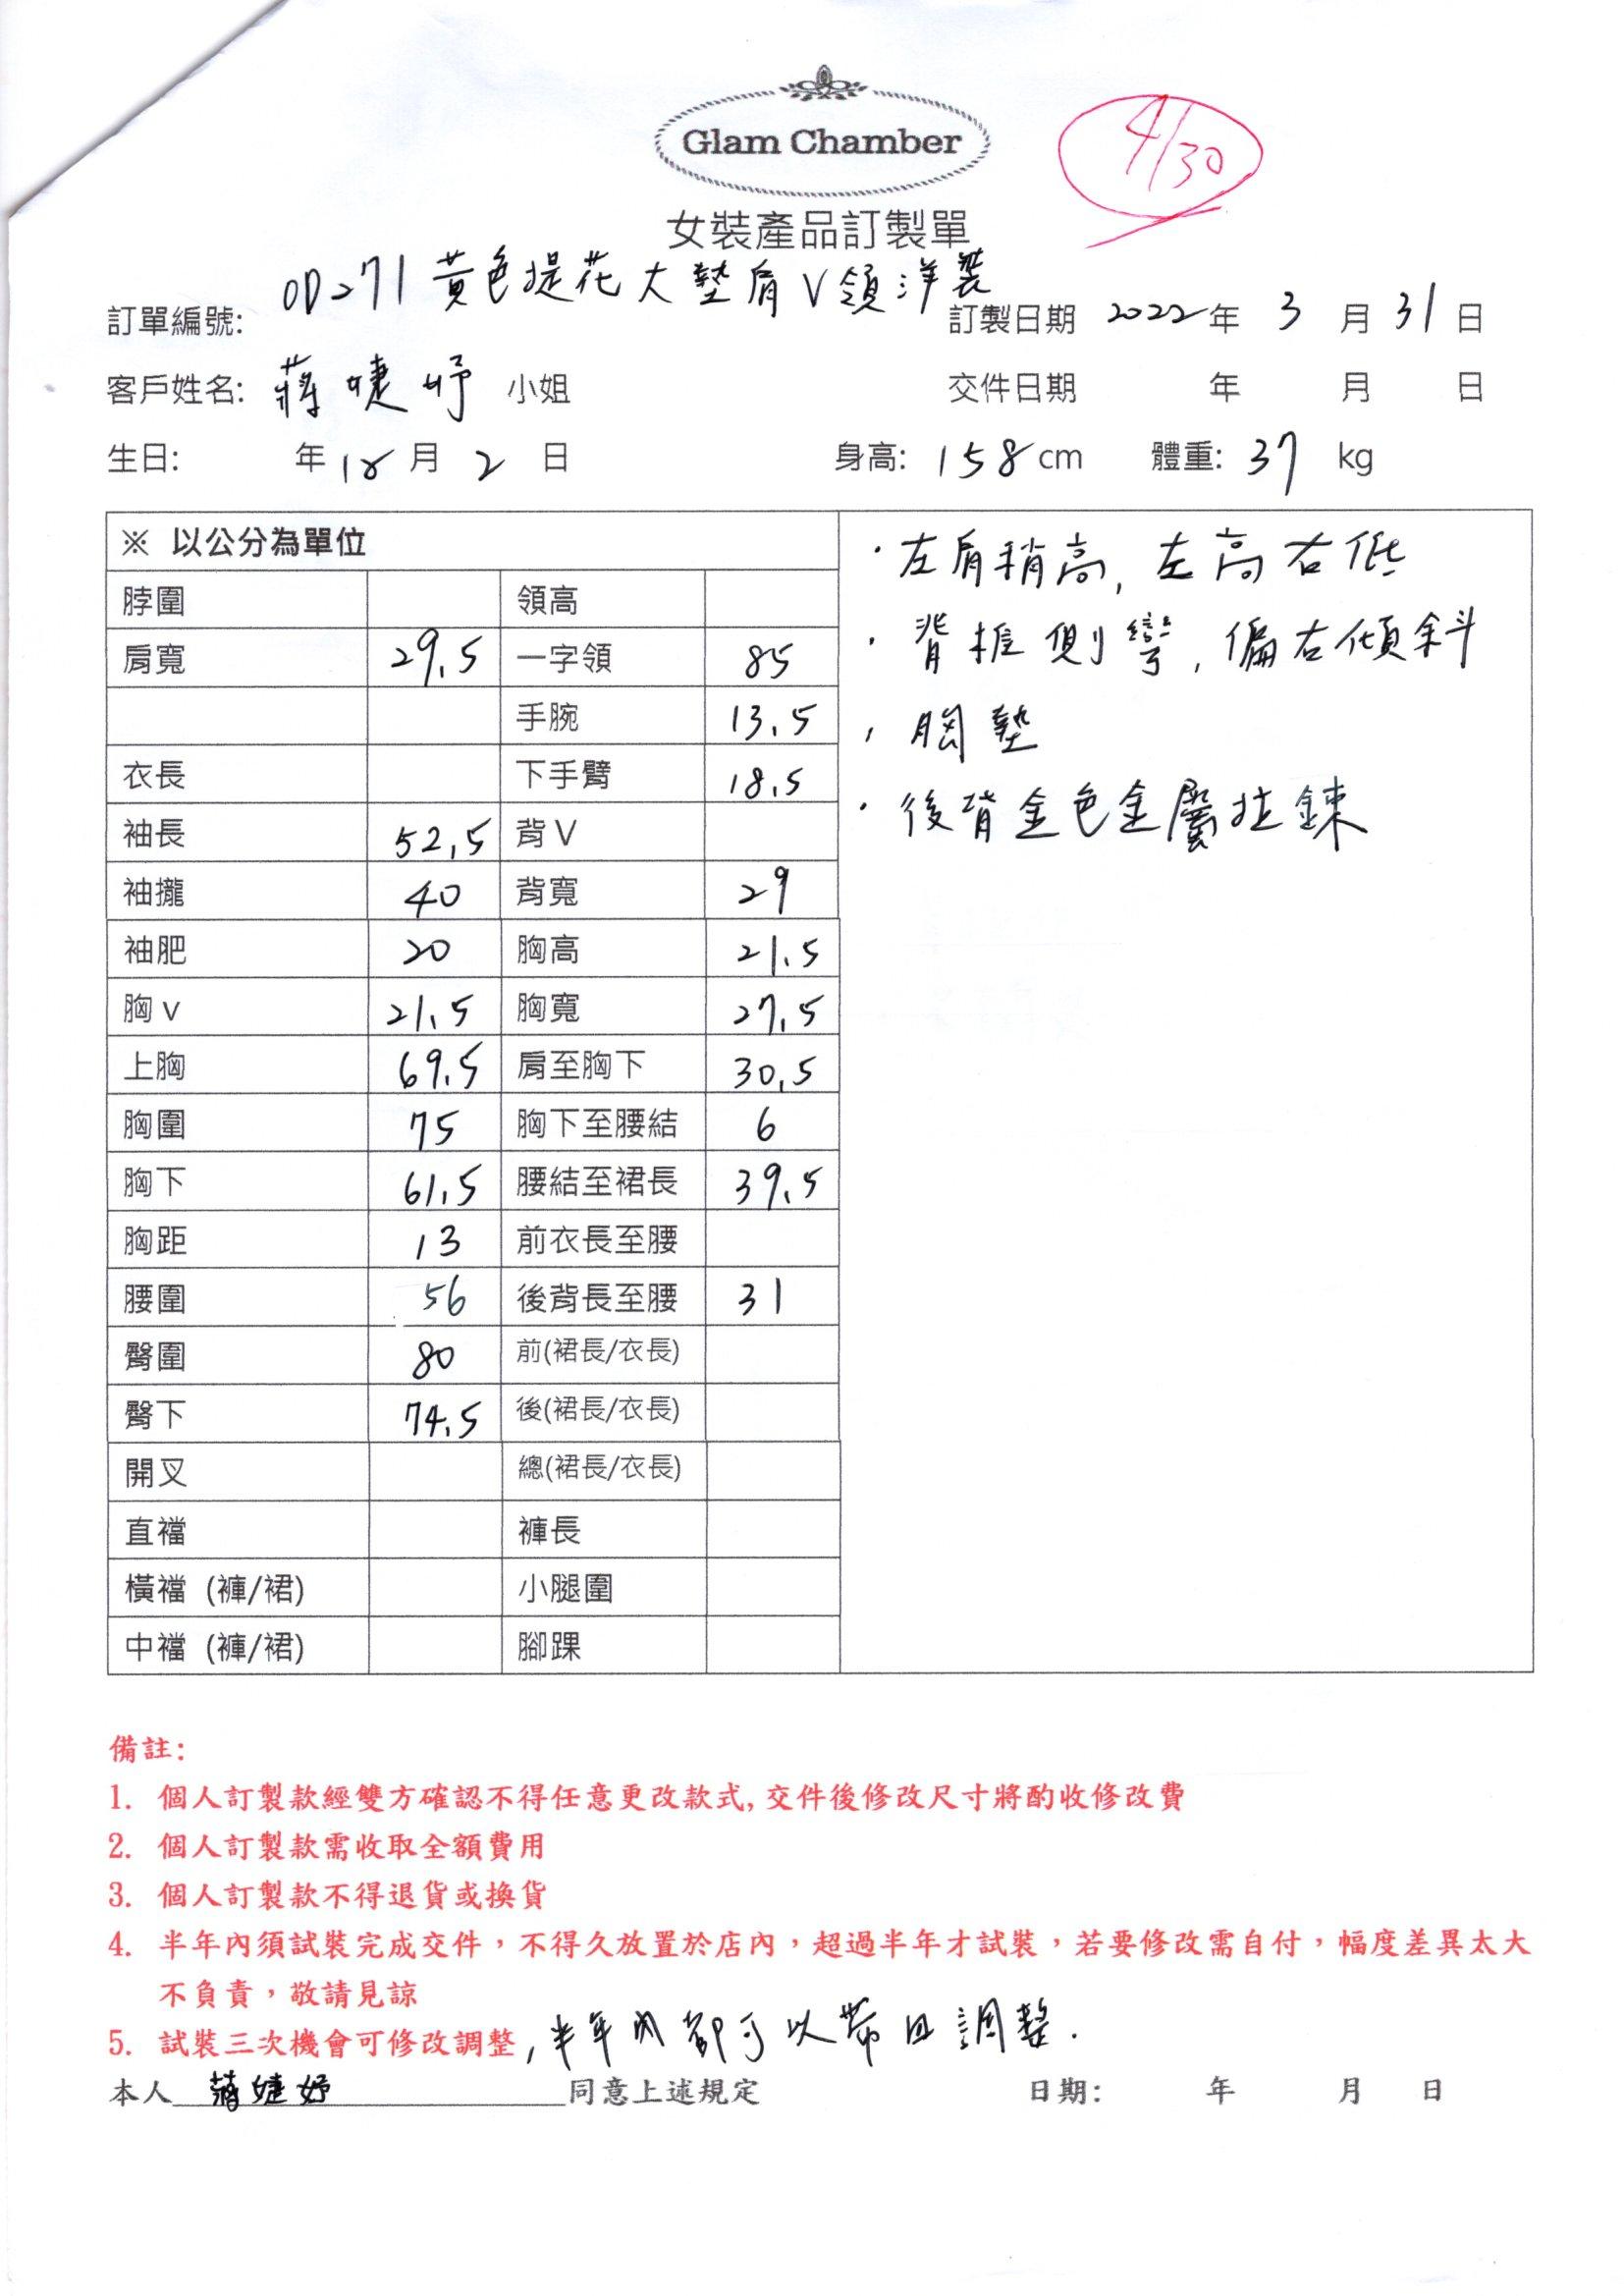 Glam Chamber
4/30
女裝產品訂製單
訂單編號: OD271 黃色提花大墊肩V領洋裝 訂製日期 2022年 3 月 31 日
客戶姓名: 蔣婕妤 小姐 交件日期 年 月 日
生日: 年 月 2 日 身高: 158 cm 體重: 37 kg
※ 以公分為單位
脖圍 領高
肩寬 29.5 一字領 85
手腕 13.5
衣長 下手臂 18.5
袖長 52.5 背V
袖攏 40 背寬 29
袖肥 20 胸高 21.5
胸 v 21.5 胸寬 27.5
上胸 69.5 肩至胸下 30.5
胸圍 75 胸下至腰結 6
胸下 61.5 腰結至裙長 39.5
胸距 13 前衣長至腰
腰圍 56 後背長至腰 31
臀圍 80 前(裙長/衣長)
臀下 74.5 後(裙長/衣長)
開叉 總(裙長/衣長)
直襠 褲長
橫襠 (褲/裙) 小腿圍
中襠 (褲/裙) 腳踝
·左肩稍高, 左高右低
·背椎側彎, 偏右傾斜
·胸墊
·後背金色金屬拉鍊
備註:
1. 個人訂製款經雙方確認不得任意更改款式, 交件後修改尺寸將酌收修改費
2. 個人訂製款需收取全額費用
3. 個人訂製款不得退貨或換貨
4. 半年內須試裝完成交件，不得久放置於店內，超過半年才試裝，若要修改需自付，幅度差異太大
不負責，敬請見諒
5. 試裝三次機會可修改調整, 半年內都可以帶回調整.
本人 蔣婕妤 同意上述規定 日期: 年 月 日